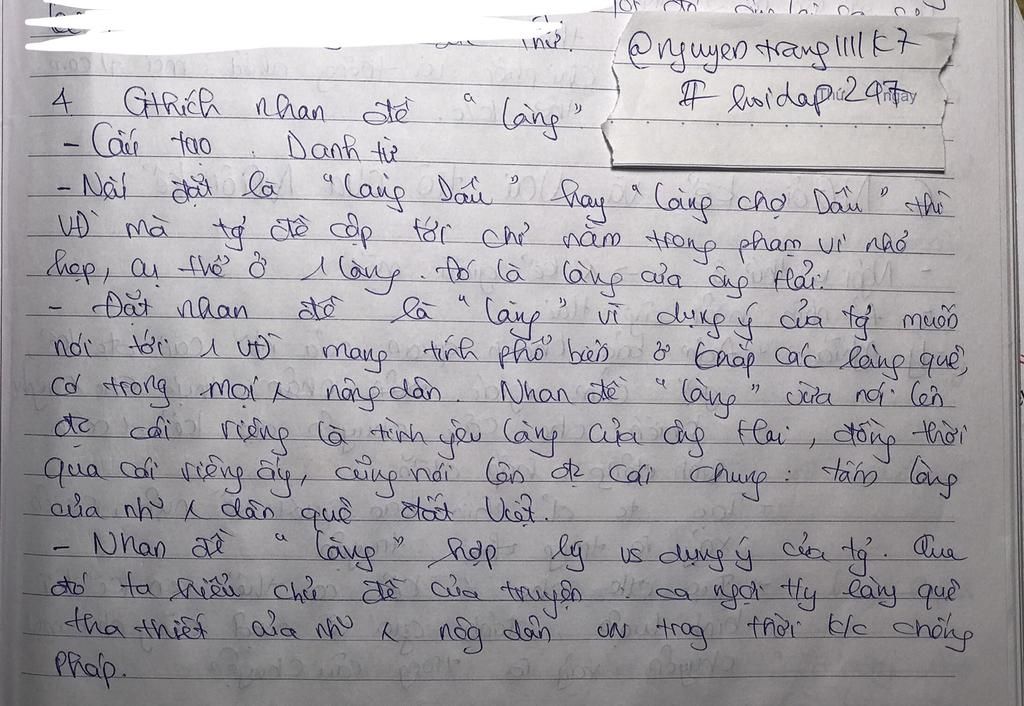 thứ.
@nguyentrang1111k7
# hoidap247
ngay
4. Gthích nhan đề " Làng "
- Cấu tạo : Danh từ
- Nếu đặt là " Làng Dầu " hay " Làng chợ Dầu " thì
VĐ mà tg' đề cập tới chỉ nằm trong phạm vi nhỏ
hẹp, cụ thể ở 1 làng. Đó là làng của ông Hai.
- Đặt nhan đề là " Làng " vì dụng ý của tg' muốn
nói tới 1 VĐ mang tính phổ biến ở khắp các làng quê,
có trong mọi ng nông dân. Nhan đề " Làng " vừa nói lên
đc cái riêng là tình yêu làng của ông Hai, đồng thời
qua cái riêng ấy, cũng nói lên đc cái chung : tấm lòng
của nh~ ng dân quê đất Việt.
- Nhan đề " Làng " hợp lý vs dụng ý của tg'. Qua
đó ta hiểu chủ đề của truyện : ca ngợi ty làng quê
tha thiết của nh~ ng nôg dân VN trog thời k/c chống
Pháp.